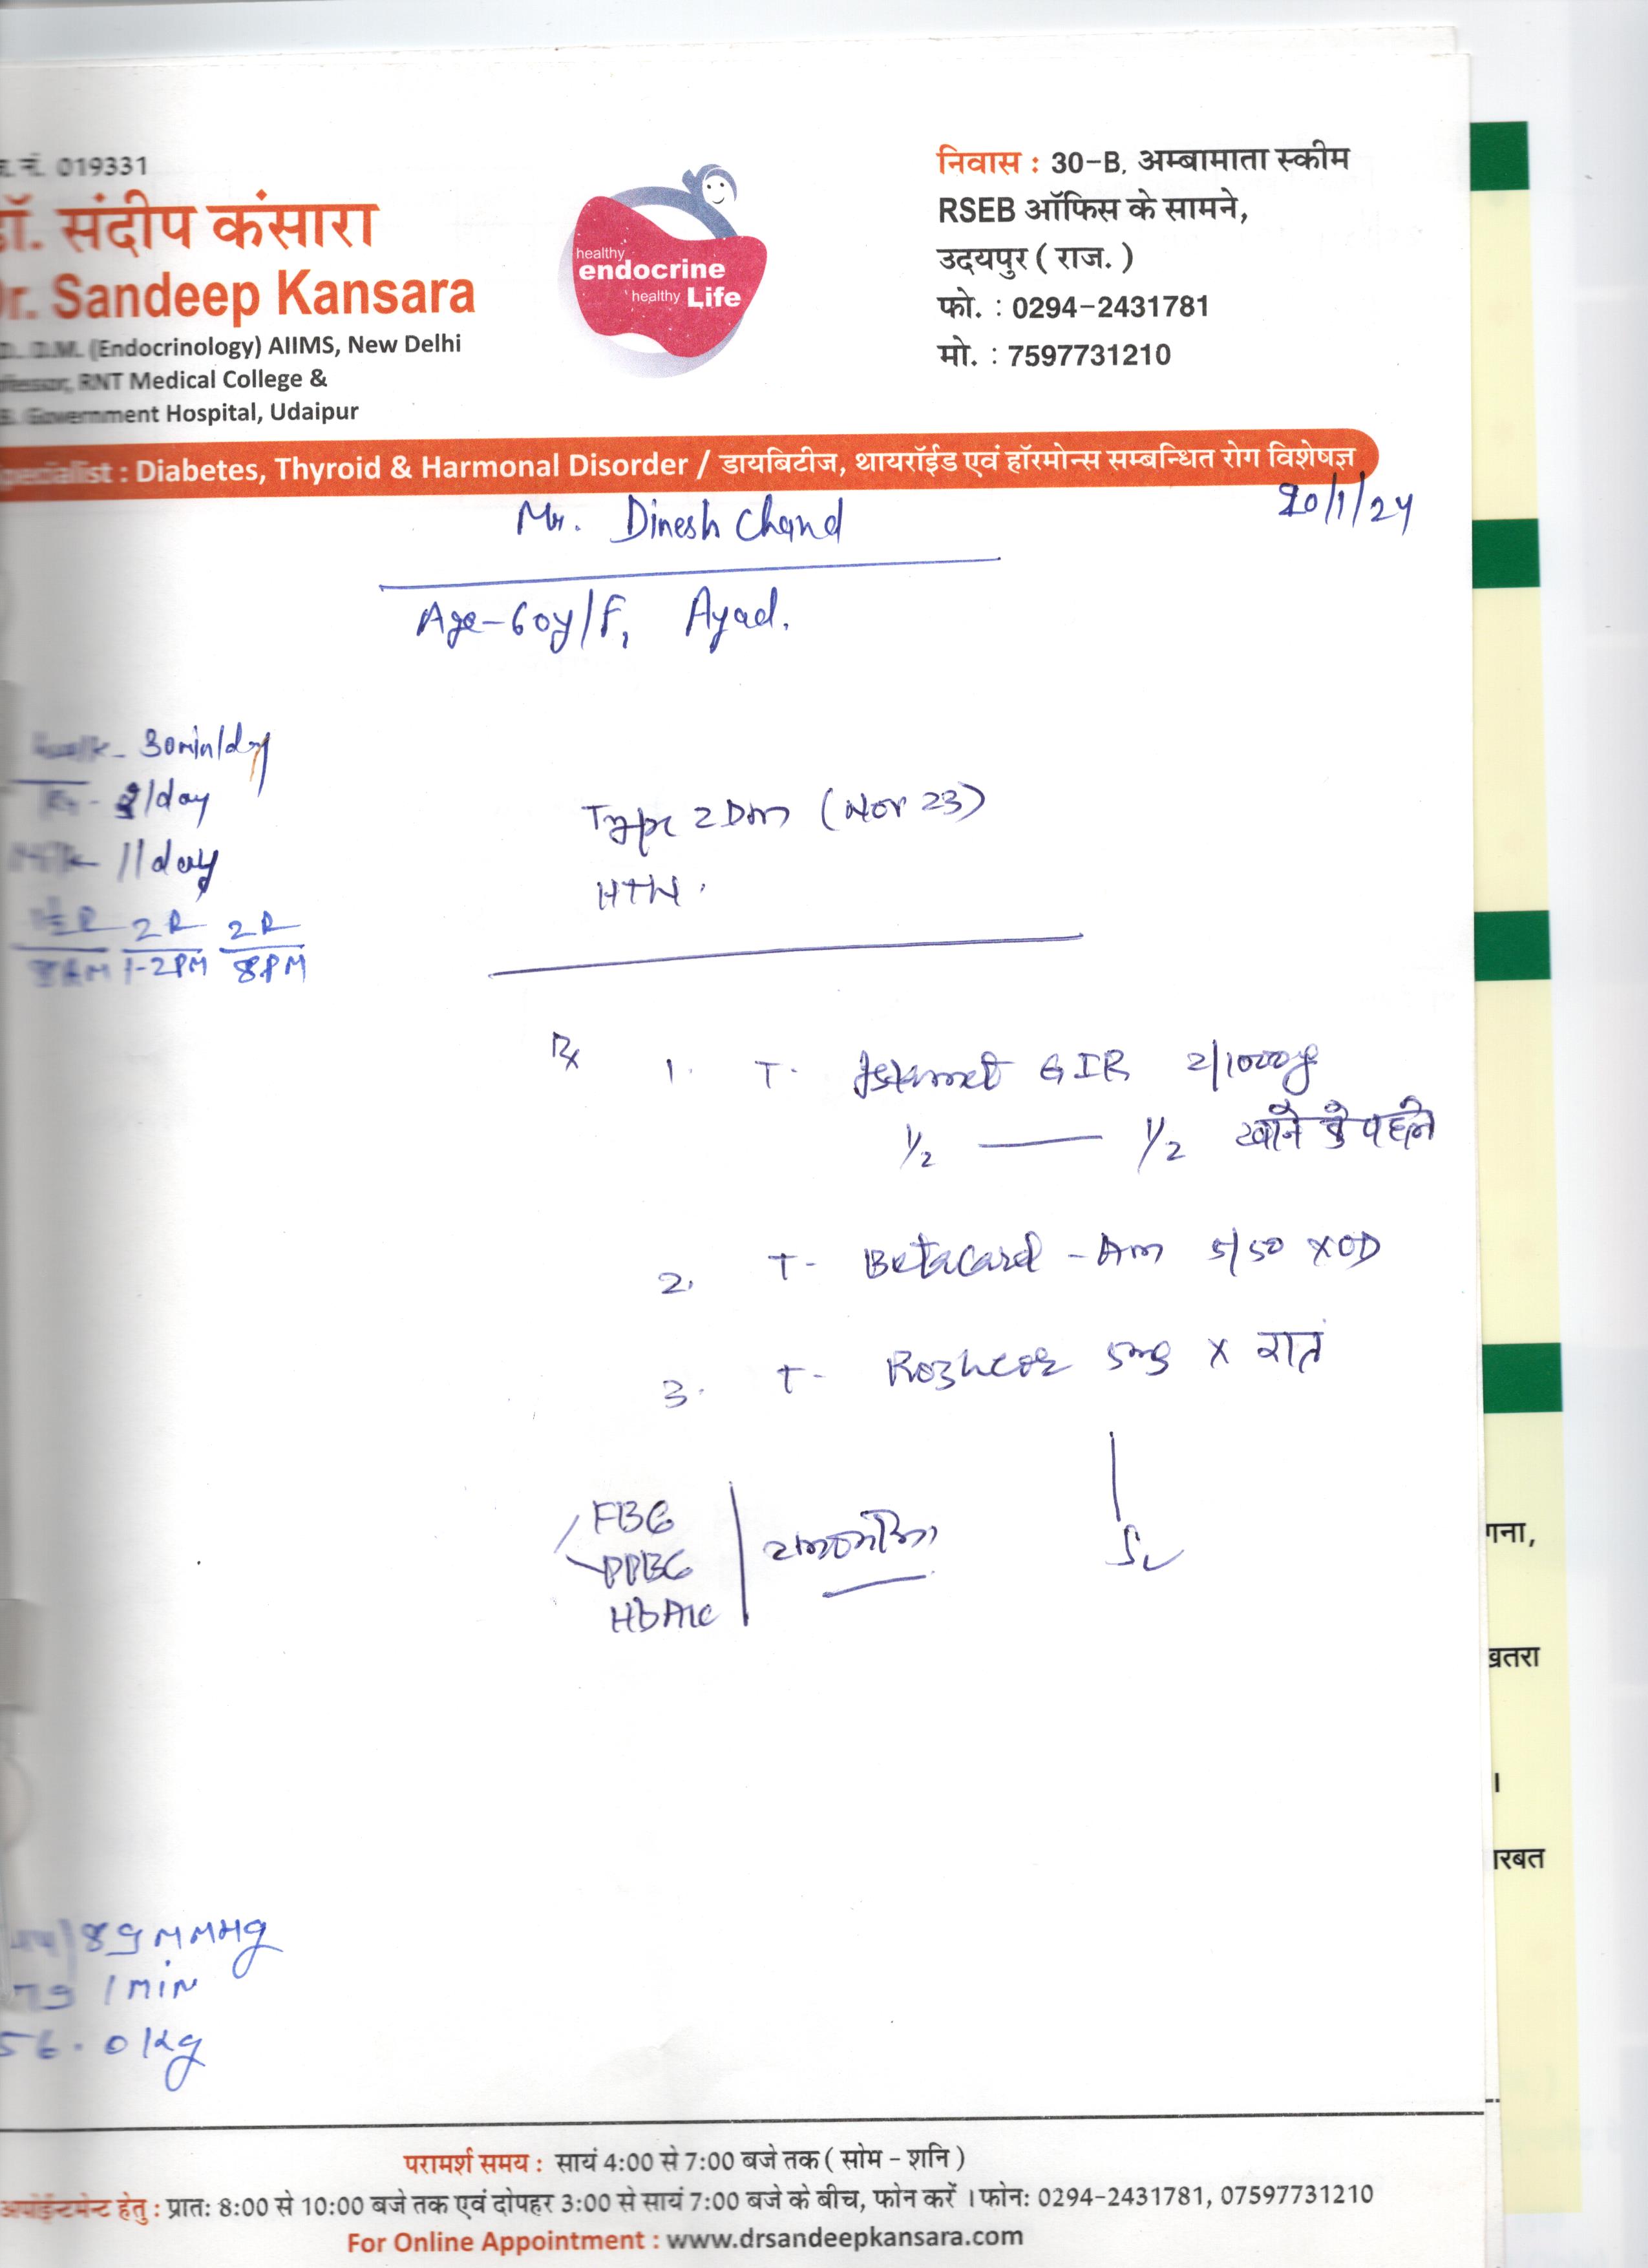 नं. 019331
डॉ. संदीप कंसारा
Dr. Sandeep Kansara
D.M. (Endocrinology) AIIMS, New Delhi
RNT Medical College &
Government Hospital, Udaipur
healthy
endocrine
healthy Life
निवास : 30-B, अम्बामाता स्कीम
RSEB ऑफिस के सामने,
उदयपुर ( राज. )
फो. : 0294-2431781
मो. : 7597731210
Specialist : Diabetes, Thyroid & Harmonal Disorder / डायबिटीज, थायरॉईड एवं हॉरमोन्स सम्बन्धित रोग विशेषज्ञ
20/1/24
Mr. Dinesh Chand
Age-60y/F, Ayad.
walk - 30min/day
/day
Milk - 1/day
2R 2R
8AM 1-2PM 8PM
Type 2 Dm (Nov 23)
HTN.
Rx
1. T. GIR 2/1000
1/2 — 1/2 खाने से पहले
2. T- Betacard - Am 5/50 x OD
3. T- 5mg x रात
FBG
PPBG
HbA1c
/89 MMHg
79 /MIN
56.0 kg
गना,
खतरा
।
रबत
परामर्श समय : सायं 4:00 से 7:00 बजे तक ( सोम - शनि )
अपोईन्टमेन्ट हेतु : प्रातः 8:00 से 10:00 बजे तक एवं दोपहर 3:00 से सायं 7:00 बजे के बीच, फोन करें । फोनः 0294-2431781, 07597731210
For Online Appointment : www.drsandeepkansara.com